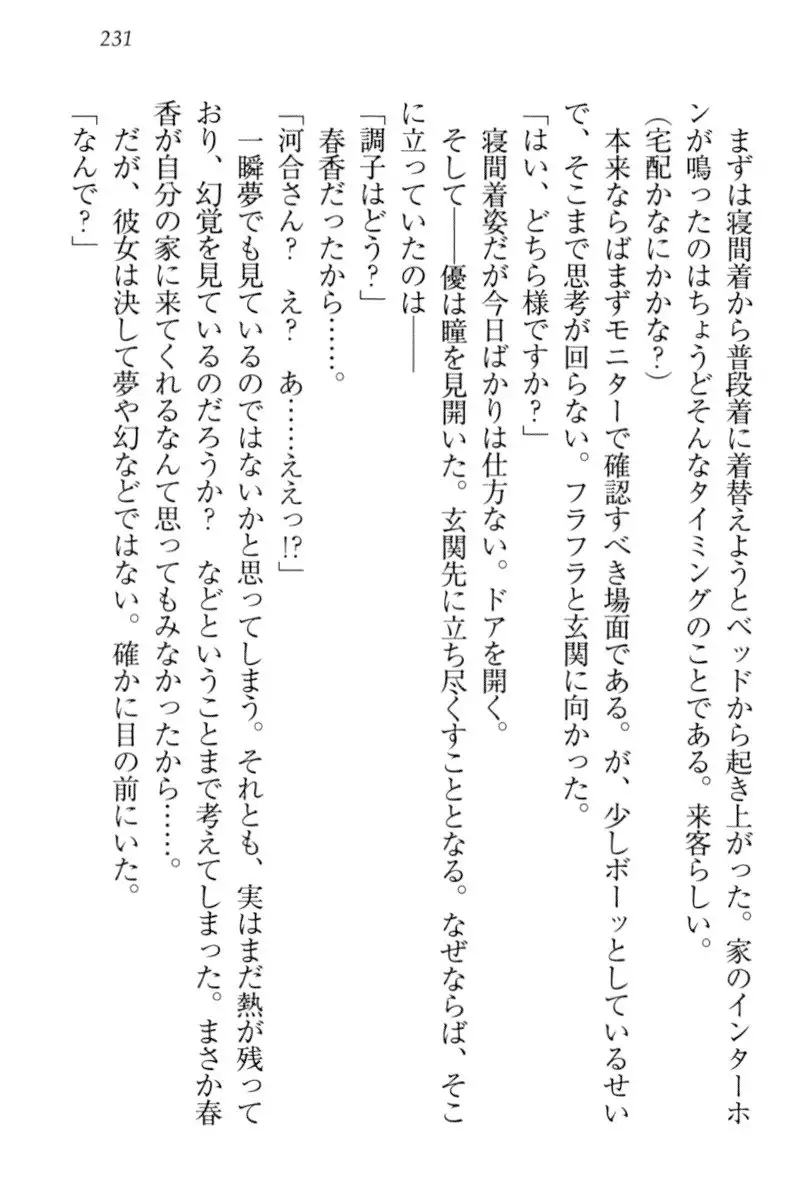 231
まずは寝間着から普段着に着替えようとベッドから起き上がった。家のインターホ
ンが鳴ったのはちょうどそんなタイミングのことである。来客らしい。
（宅配かなにかかな？）
本来ならばまずモニターで確認すべき場面である。が、少しボーッとしているせい
で、そこまで思考が回らない。フラフラと玄関に向かった。
「はい、どちら様ですか？」
寝間着姿だが今日ばかりは仕方ない。ドアを開く。
そして――優は瞳を見開いた。玄関先に立ち尽くすこととなる。なぜならば、そこ
に立っていたのは――
「調子はどう？」
春香だったから……。
「河合さん？　え？　あ……ええっ!?」
一瞬夢でも見ているのではないかと思ってしまう。それとも、実はまだ熱が残って
おり、幻覚を見ているのだろうか？　などということまで考えてしまった。まさか春
香が自分の家に来てくれるなんて思ってもみなかったから……。
だが、彼女は決して夢や幻などではない。確かに目の前にいた。
「なんで？」